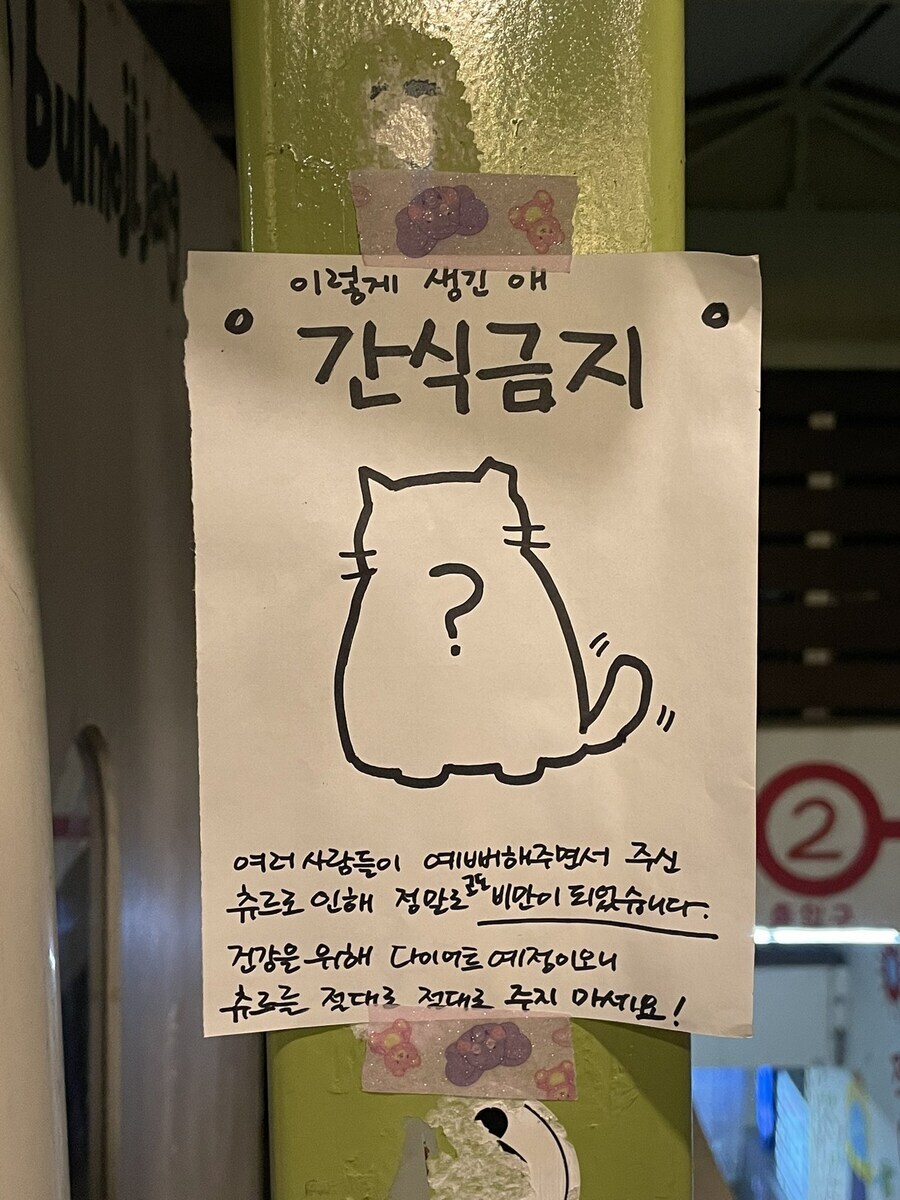 bulmojijang
이렇게 생긴 애
간식금지
?
여러 사람들이 예뻐해주면서 주신
츄르로 인해 정말로 고도 비만이 되었습니다.
건강을 위해 다이어트 예정이오니
츄르를 절대로 절대로 주지 마세요!
2
출입구